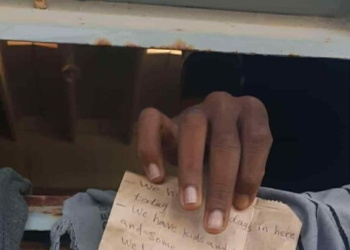 - We h
today days in here
- We have kids and
and some
We